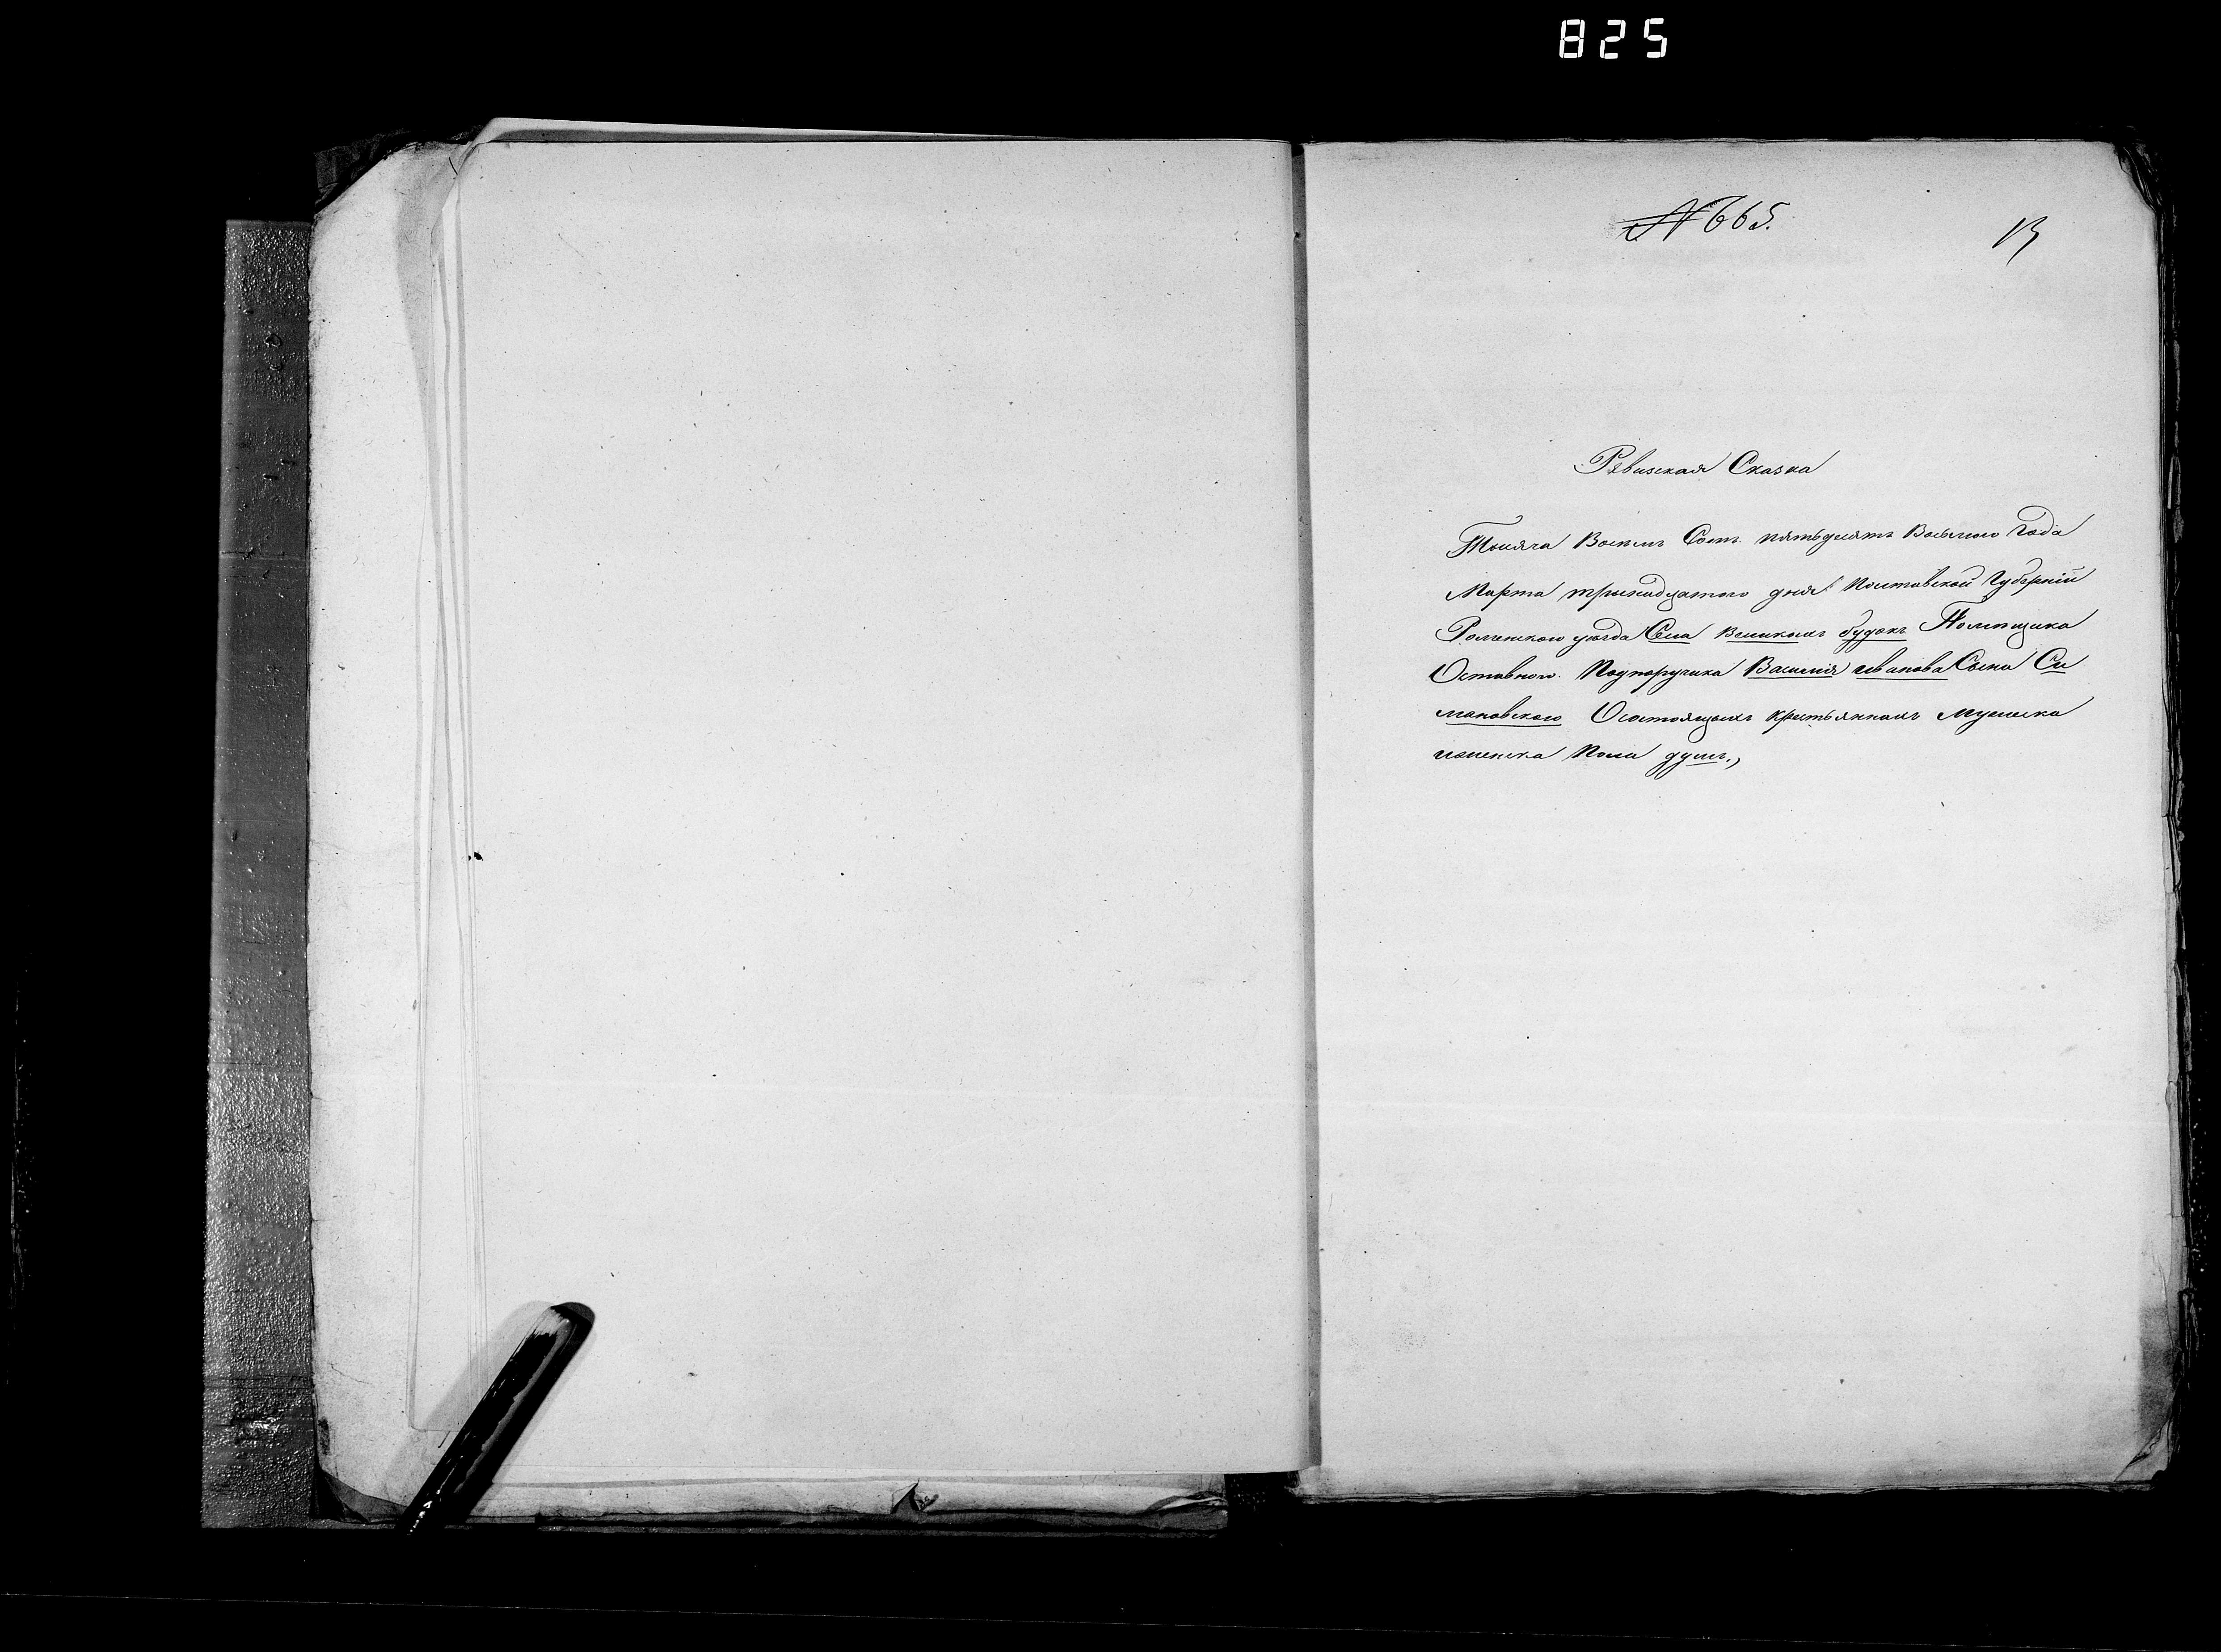 825
№ 665.
13
Ревизская Сказка
Тысяча Восемь Сотъ пятьдесятъ Восьмого Года
Марта трынадцатого дня Полтавской Губерніи
Роменского уезда Села Великихъ будокъ Помещика
Оставного Подпоручика Василія иванова Сына Си
мановского Осостоящихъ крестьянахъ Мужеска
иженска Пола душъ.,